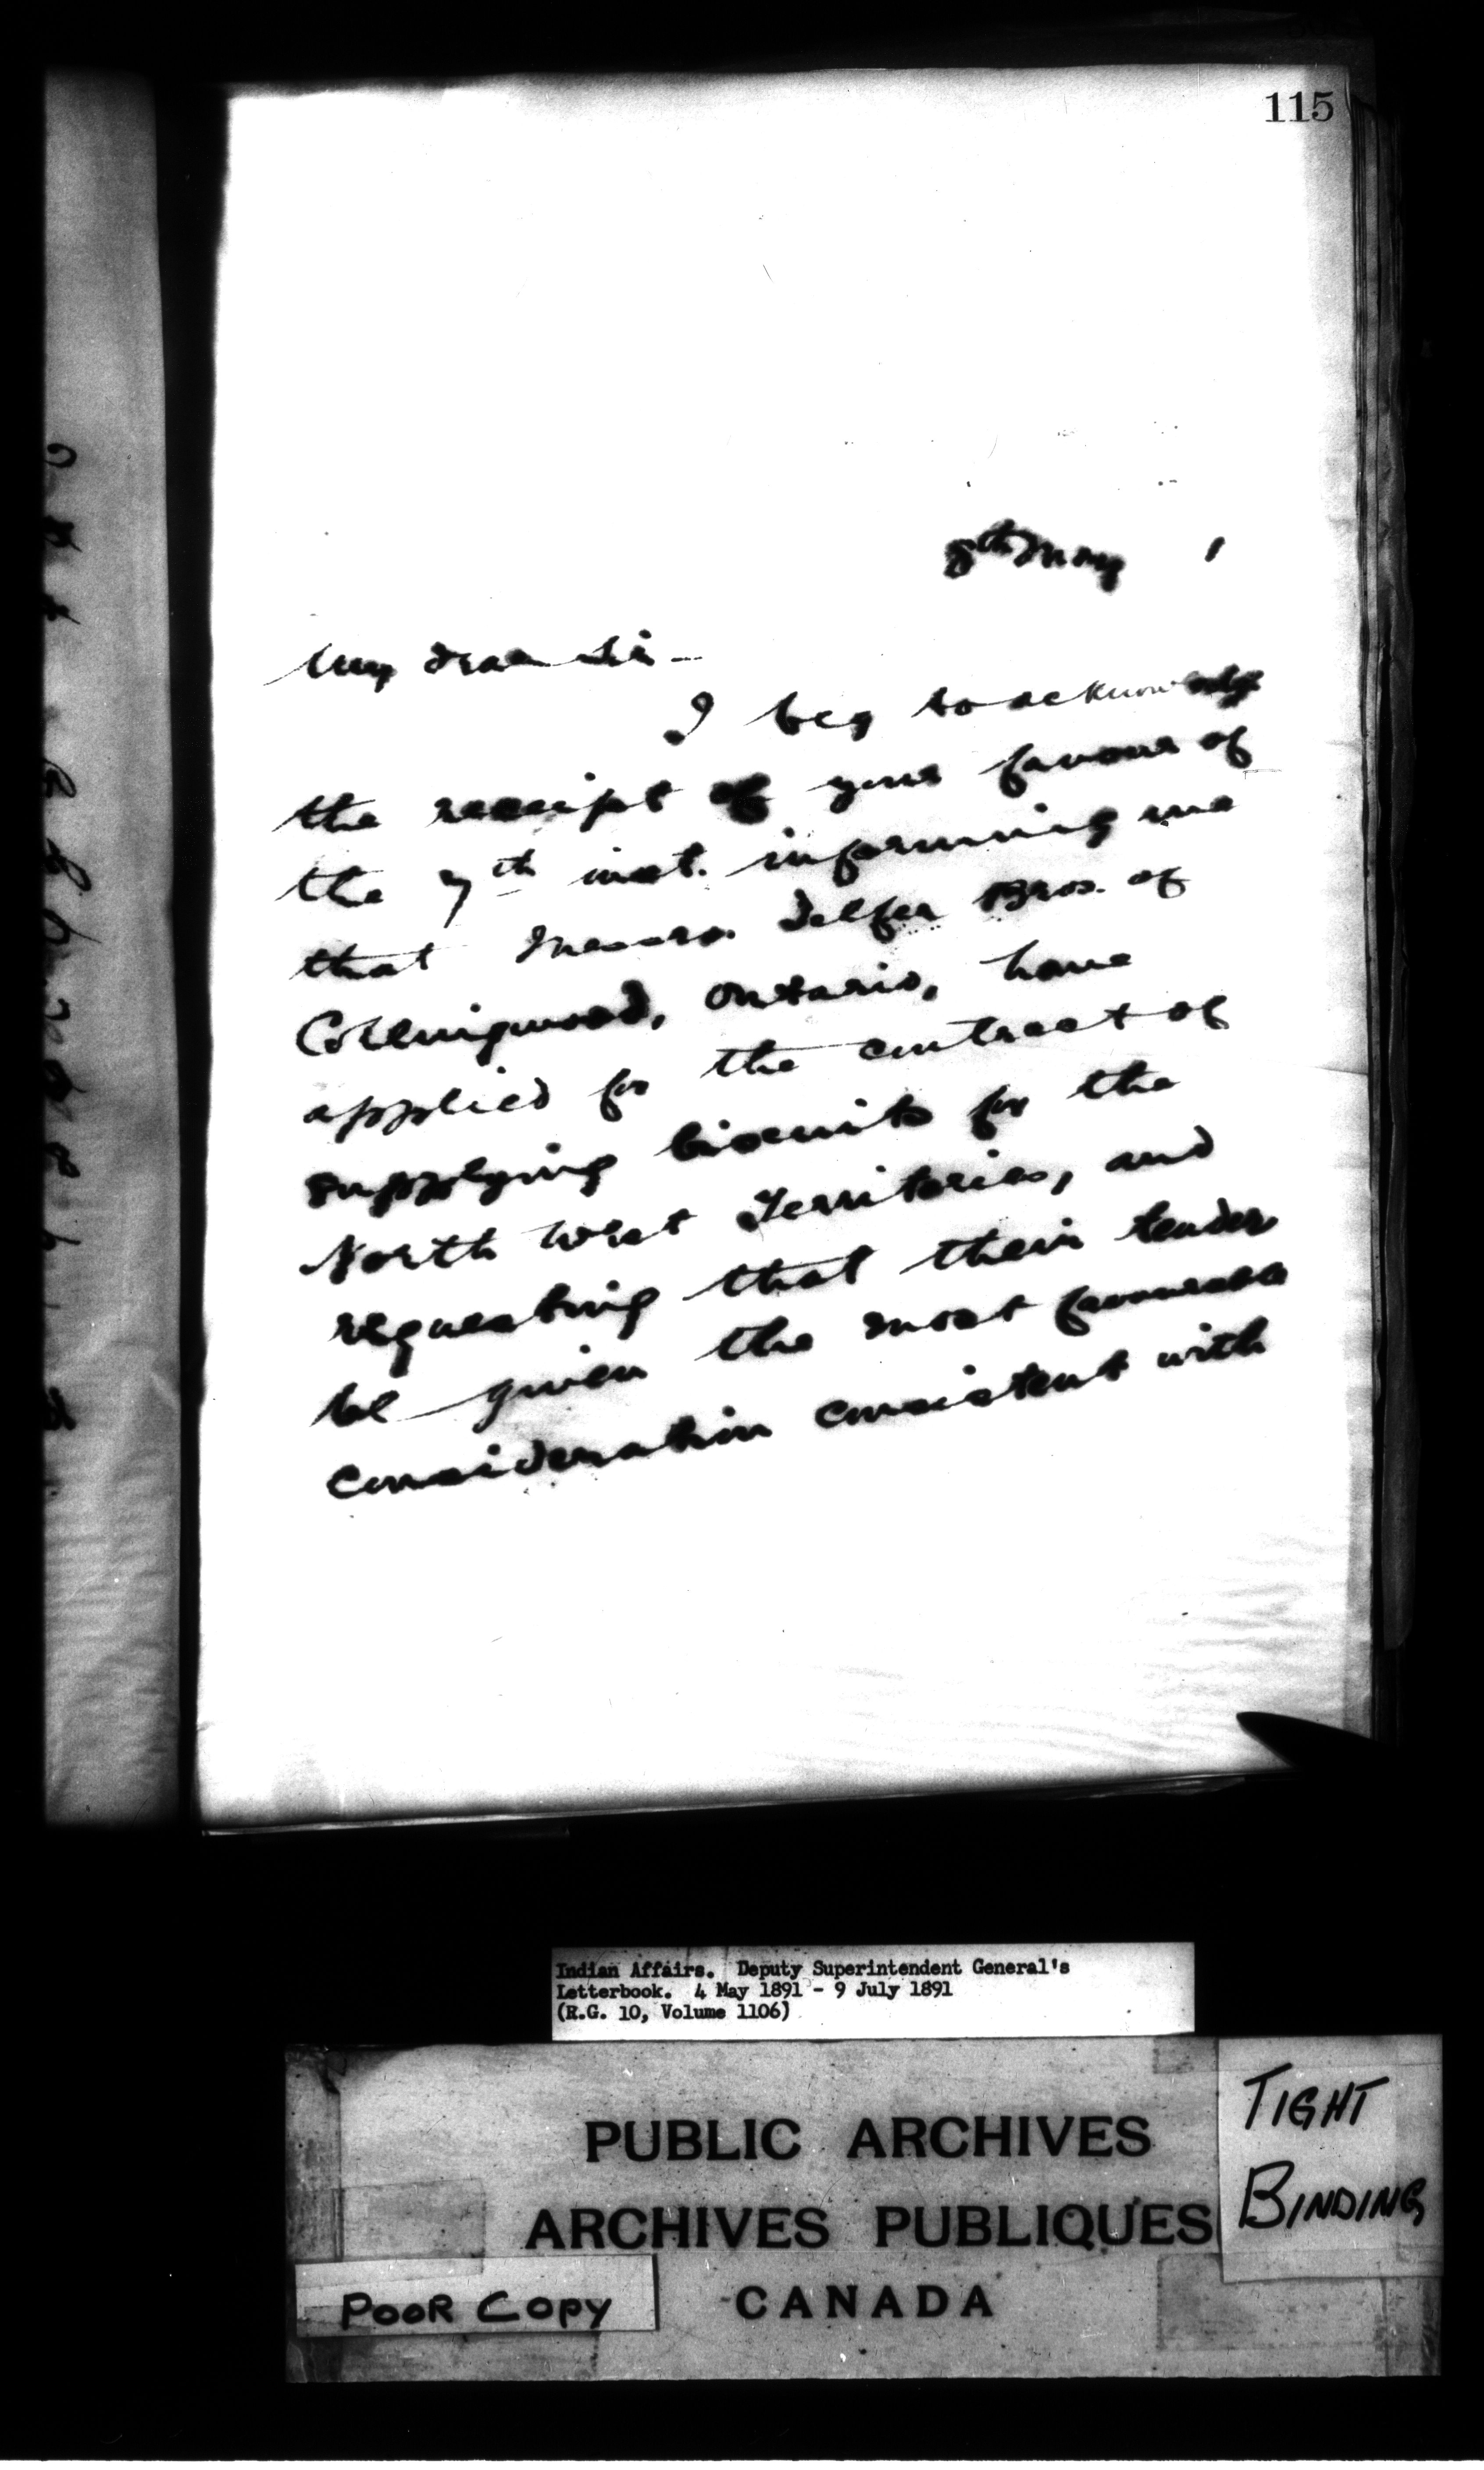 115
8th May 1
My dear Sir -
I beg to acknowledge
the receipt of your favour of
the 7th inst. informing me
that Messrs. Telfer Bros. of
Collingwood, Ontario, have
applied for the contract of
supplying biscuits for the
North West Territories, and
requesting that their tender
be given the most favourable
consideration consistent with
Indian Affairs. Deputy Superintendent General's
Letterbook. 4 May 1891 - 9 July 1891
(R.G. 10, Volume 1106)
PUBLIC ARCHIVES
ARCHIVES PUBLIQUES
CANADA
TIGHT
BINDING
POOR COPY